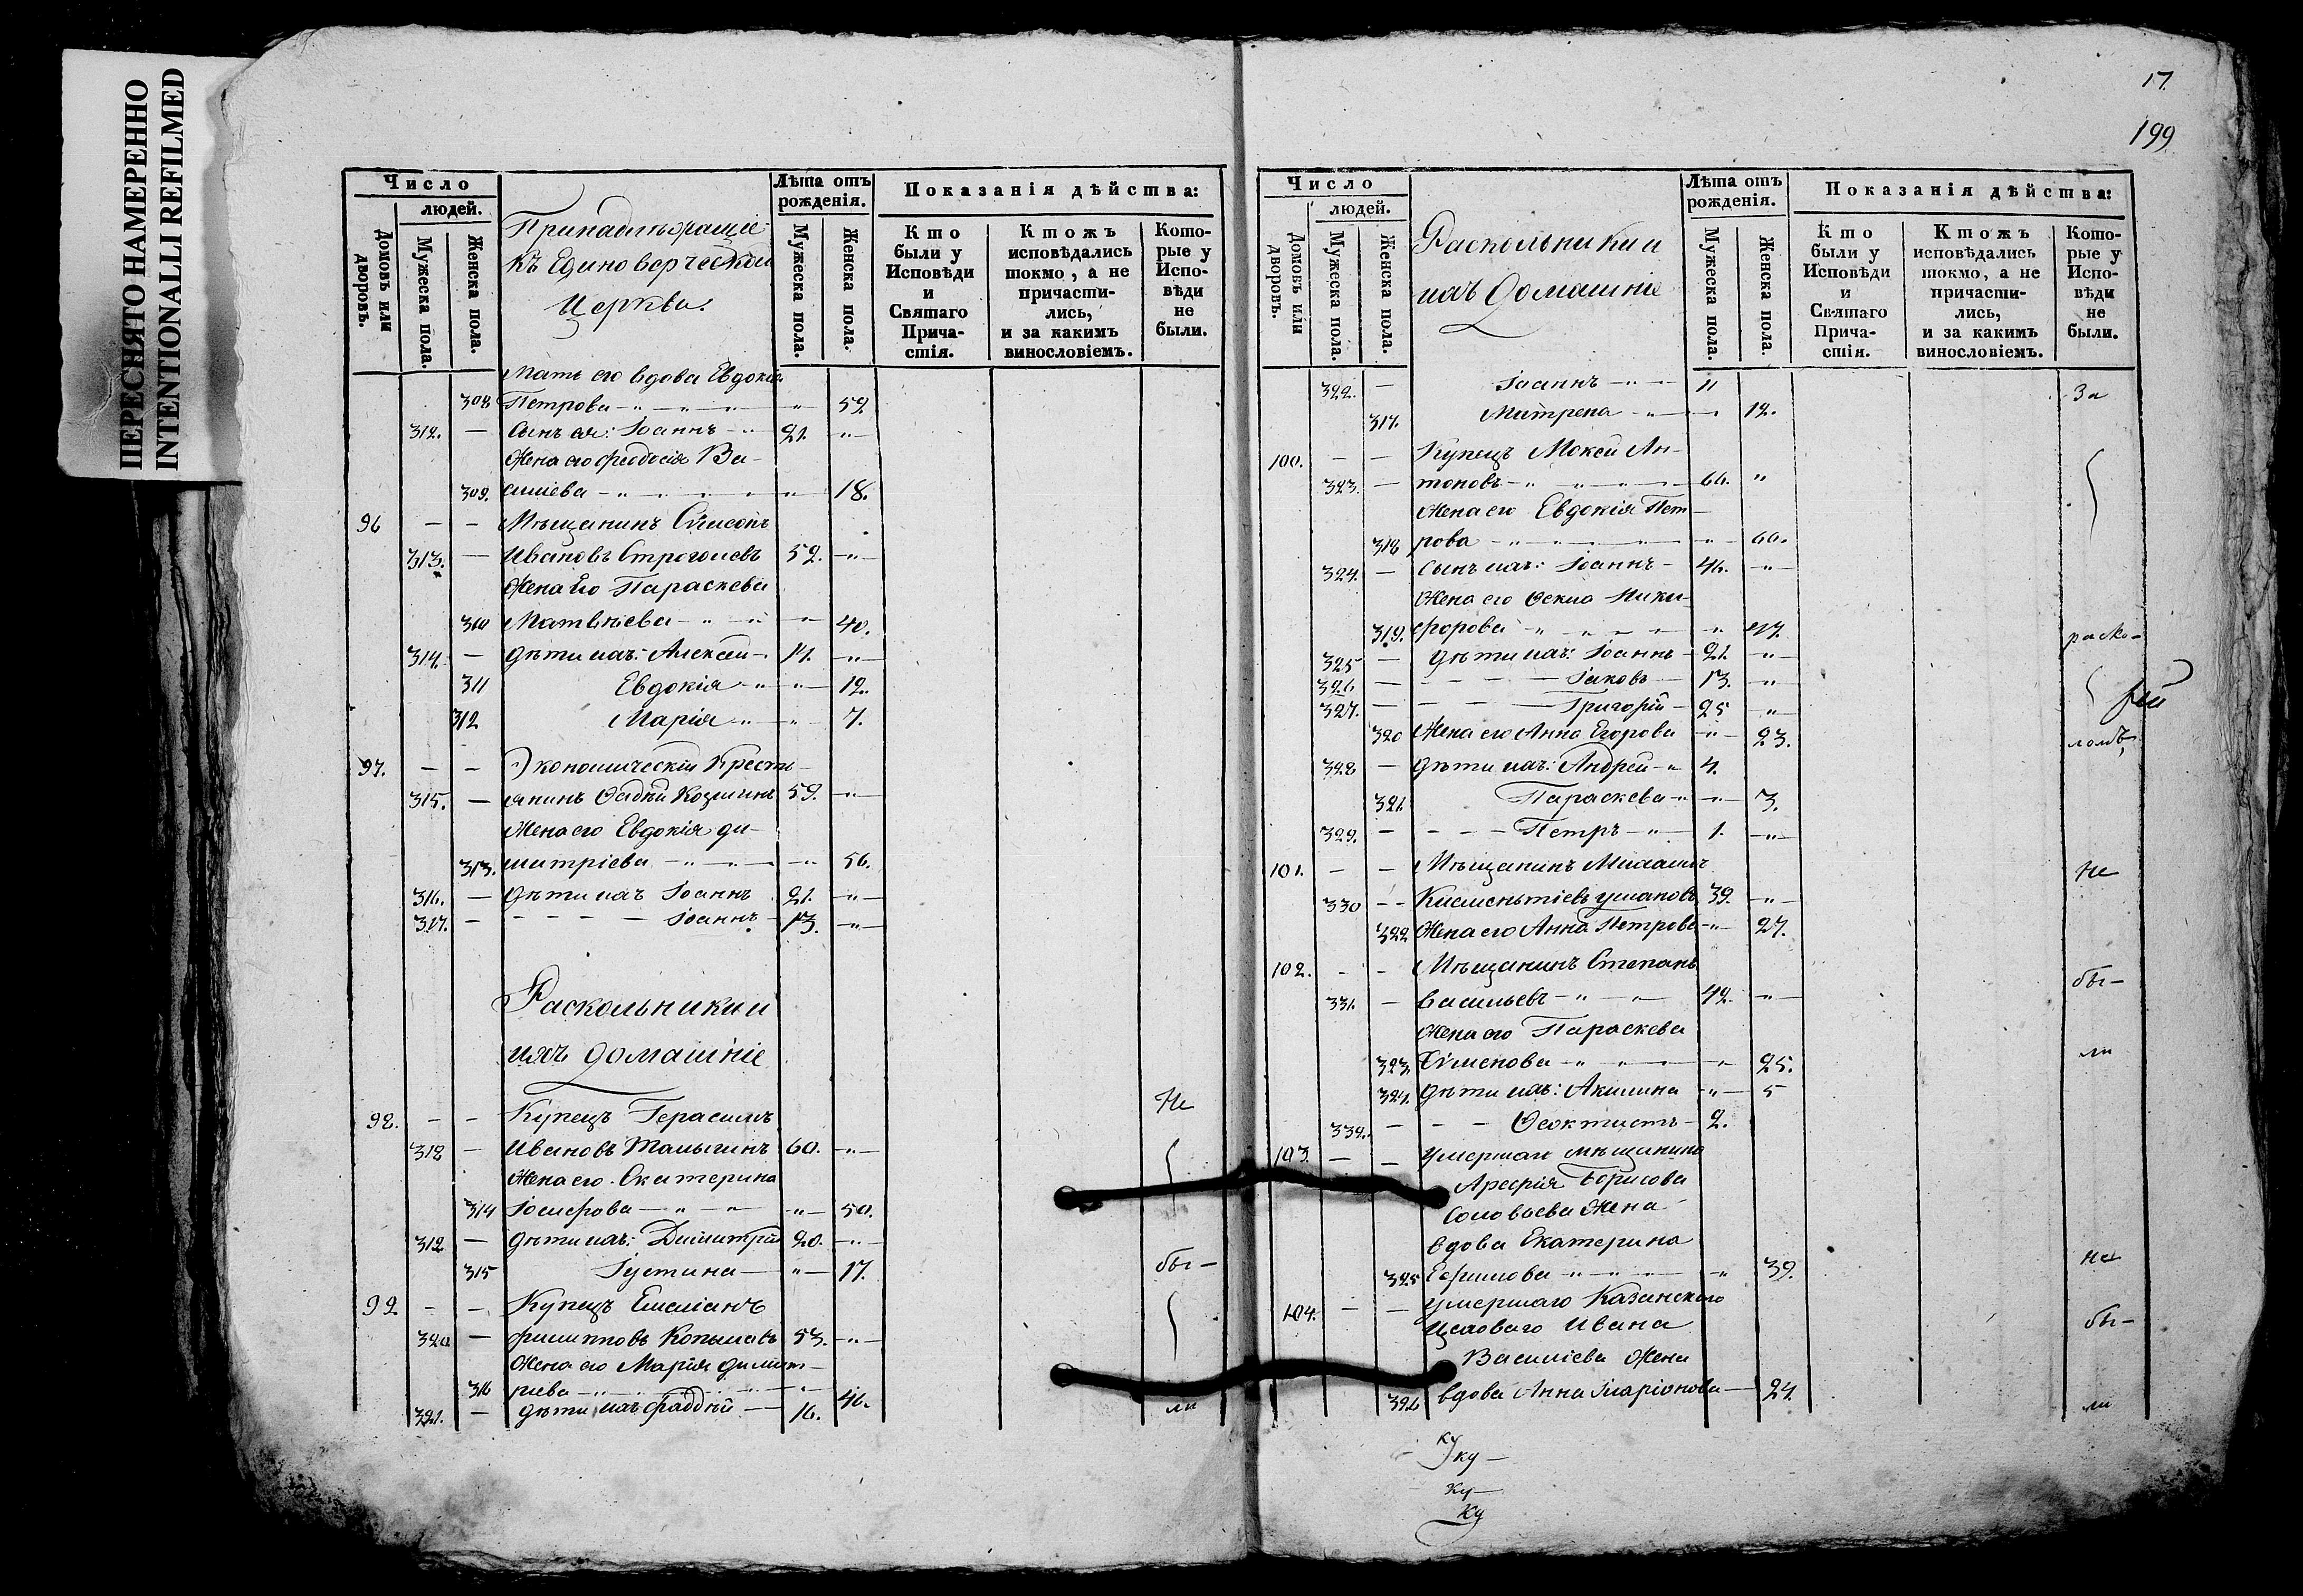 ПЕРЕСНЯТО НАМЕРЕННО
INTENTIONALLI REFILMED
Число
людей.
Домовъ или дворовъ.
Мужеска пола.
Женска пола.
Принадлѣжащіе
къ Единоверческой
Церкви.
Лѣта отъ рожденія.
Мужеска пола.
Женска пола.
Показанія дѣйства:
Кто были у Исповѣди и Святаго Причастія.
Ктожъ исповѣдались токмо, а не причастились, и за какимъ винословіемъ.
Которые у Исповѣди не были.
Мать его вдова Евдокія
308 Петрова 59
312. Сынъ ея: Іоаннъ 21.
Жена его Феодосія Ва-
309. силіева 18.
96 Мѣщанинъ Сѵмеонъ
313. Ивановъ Строголевъ 52.
Жена его Параскева
310 Матвѣева 40.
314. Дѣти ихъ: Алексѣй 14.
311 Евдокія 12.
312 Марія 7.
97. Экономическій Кресть-
315. янинъ Ѳадѣй Козминъ 59.
Жена его Евдокія Ди-
313. митріева 56.
316. Дѣти ихъ Іоаннъ 21.
317. Іоаннъ 13.
Раскольники и
ихъ домашніе
98. Купецъ Герасимъ Не
318 Ивановъ Малыгинъ 60.
Жена его Екатерина
314 Іосифова 50.
319 Дѣти ихъ: Димитрій 20.
315 Іустина 17. бы-
99. Купецъ Емеліанъ
320 Филипповъ Копыловъ 53.
Жена его Марія Димит-
316 ріева 46.
321. Дѣти ихъ Фаддѣй 16. ли
17.
199
Число
людей.
Домовъ или дворовъ.
Мужеска пола.
Женска пола.
Раскольники и
ихъ домашніе
Лѣта отъ рожденія.
Мужеска пола.
Женска пола.
Показанія дѣйства:
Кто были у Исповѣди и Святаго Причастія.
Ктожъ исповѣдались токмо, а не причастились, и за какимъ винословіемъ.
Которые у Исповѣди не были.
322. Іоаннъ 11 За
317. Митрена 12.
100. Купецъ Мокей Ан-
323. тоновъ 66.
Жена его Евдокія Пет-
318 рова 60.
324. Сынъ ихъ: Іоаннъ 46.
Жена его Ѳекла Ники-
319. форова 47. раско-
325 Дѣти ихъ: Іоаннъ 21.
326 Іаковъ 13.
327. Григорій 25
320 Жена его Анна Егорова 23. ломъ,
328 Дѣти ихъ: Андрей 4.
321. Параскева 3.
329. Петръ 1.
101. Мѣщанинъ Михаилъ Не
330 39.
322 Жена его Анна Петрова 27.
102. Мѣщанинъ Степанъ бы-
331. Васильевъ 42.
Жена его Параскева ли
323. Сѵменова 25.
324. Дѣти ихъ: Акилина 5
332. Ѳеоктистъ 2.
103. Умершаго мѣщанина
Арефія Борисова
Соловьева жена
вдова Екатерина не
325 Ефимова 39.
104. Умершаго Казанскаго
Цеховаго Ивана бы-
Василіева жена
326 вдова Анна Иларіонова 24. ли
ку
ку
ку
ку